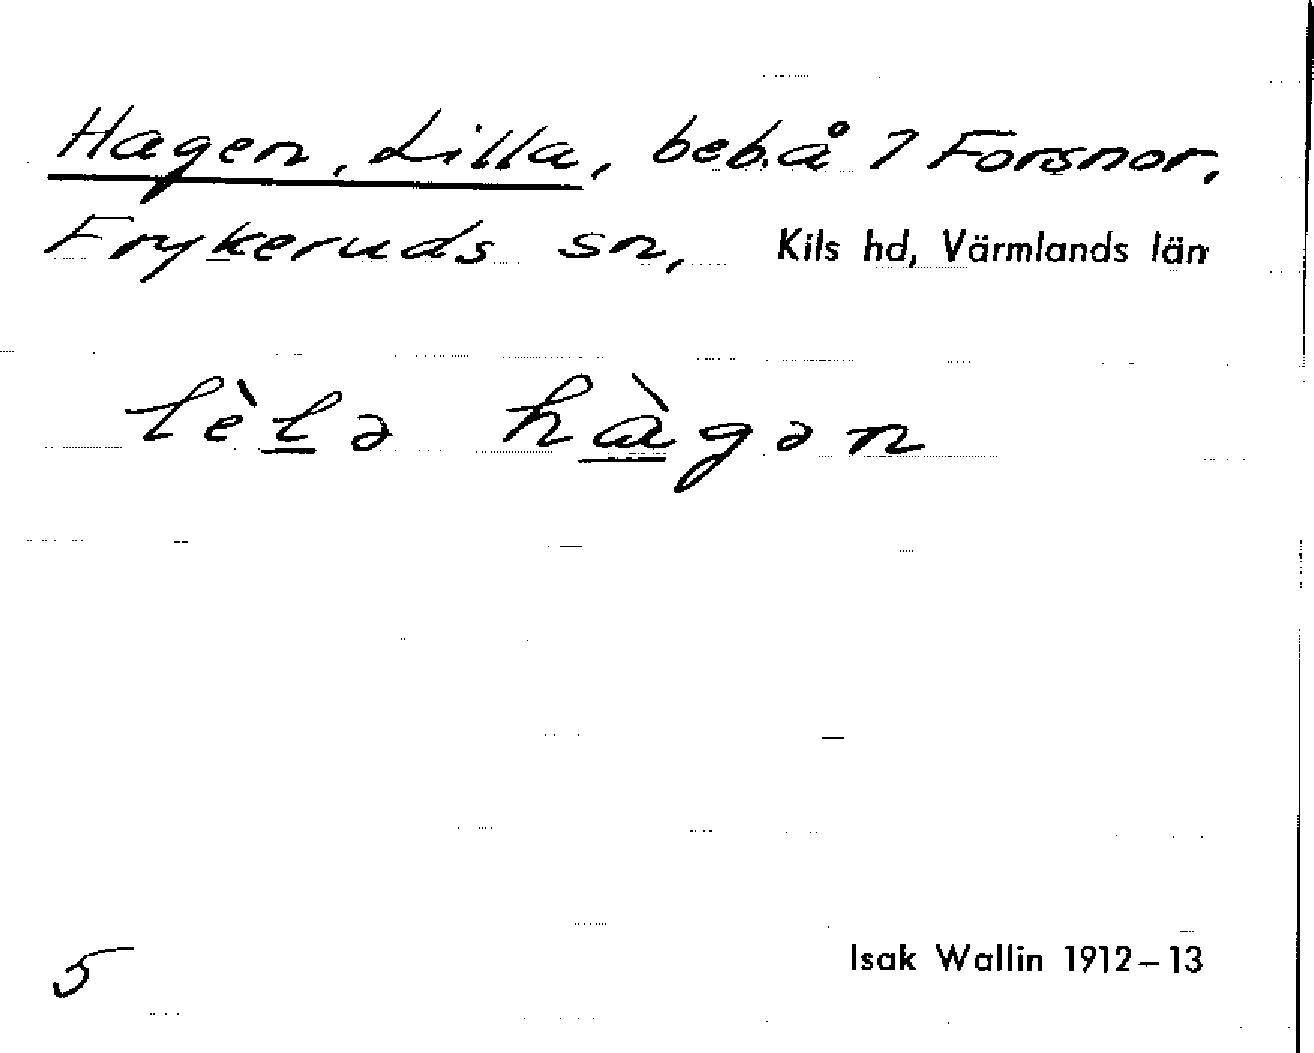 Hagen, Lilla, beb. å 7 Forsnor,
Frykeruds sn, Kils hd, Värmlands län
lèlə hàgən
5
Isak Wallin 1912–13